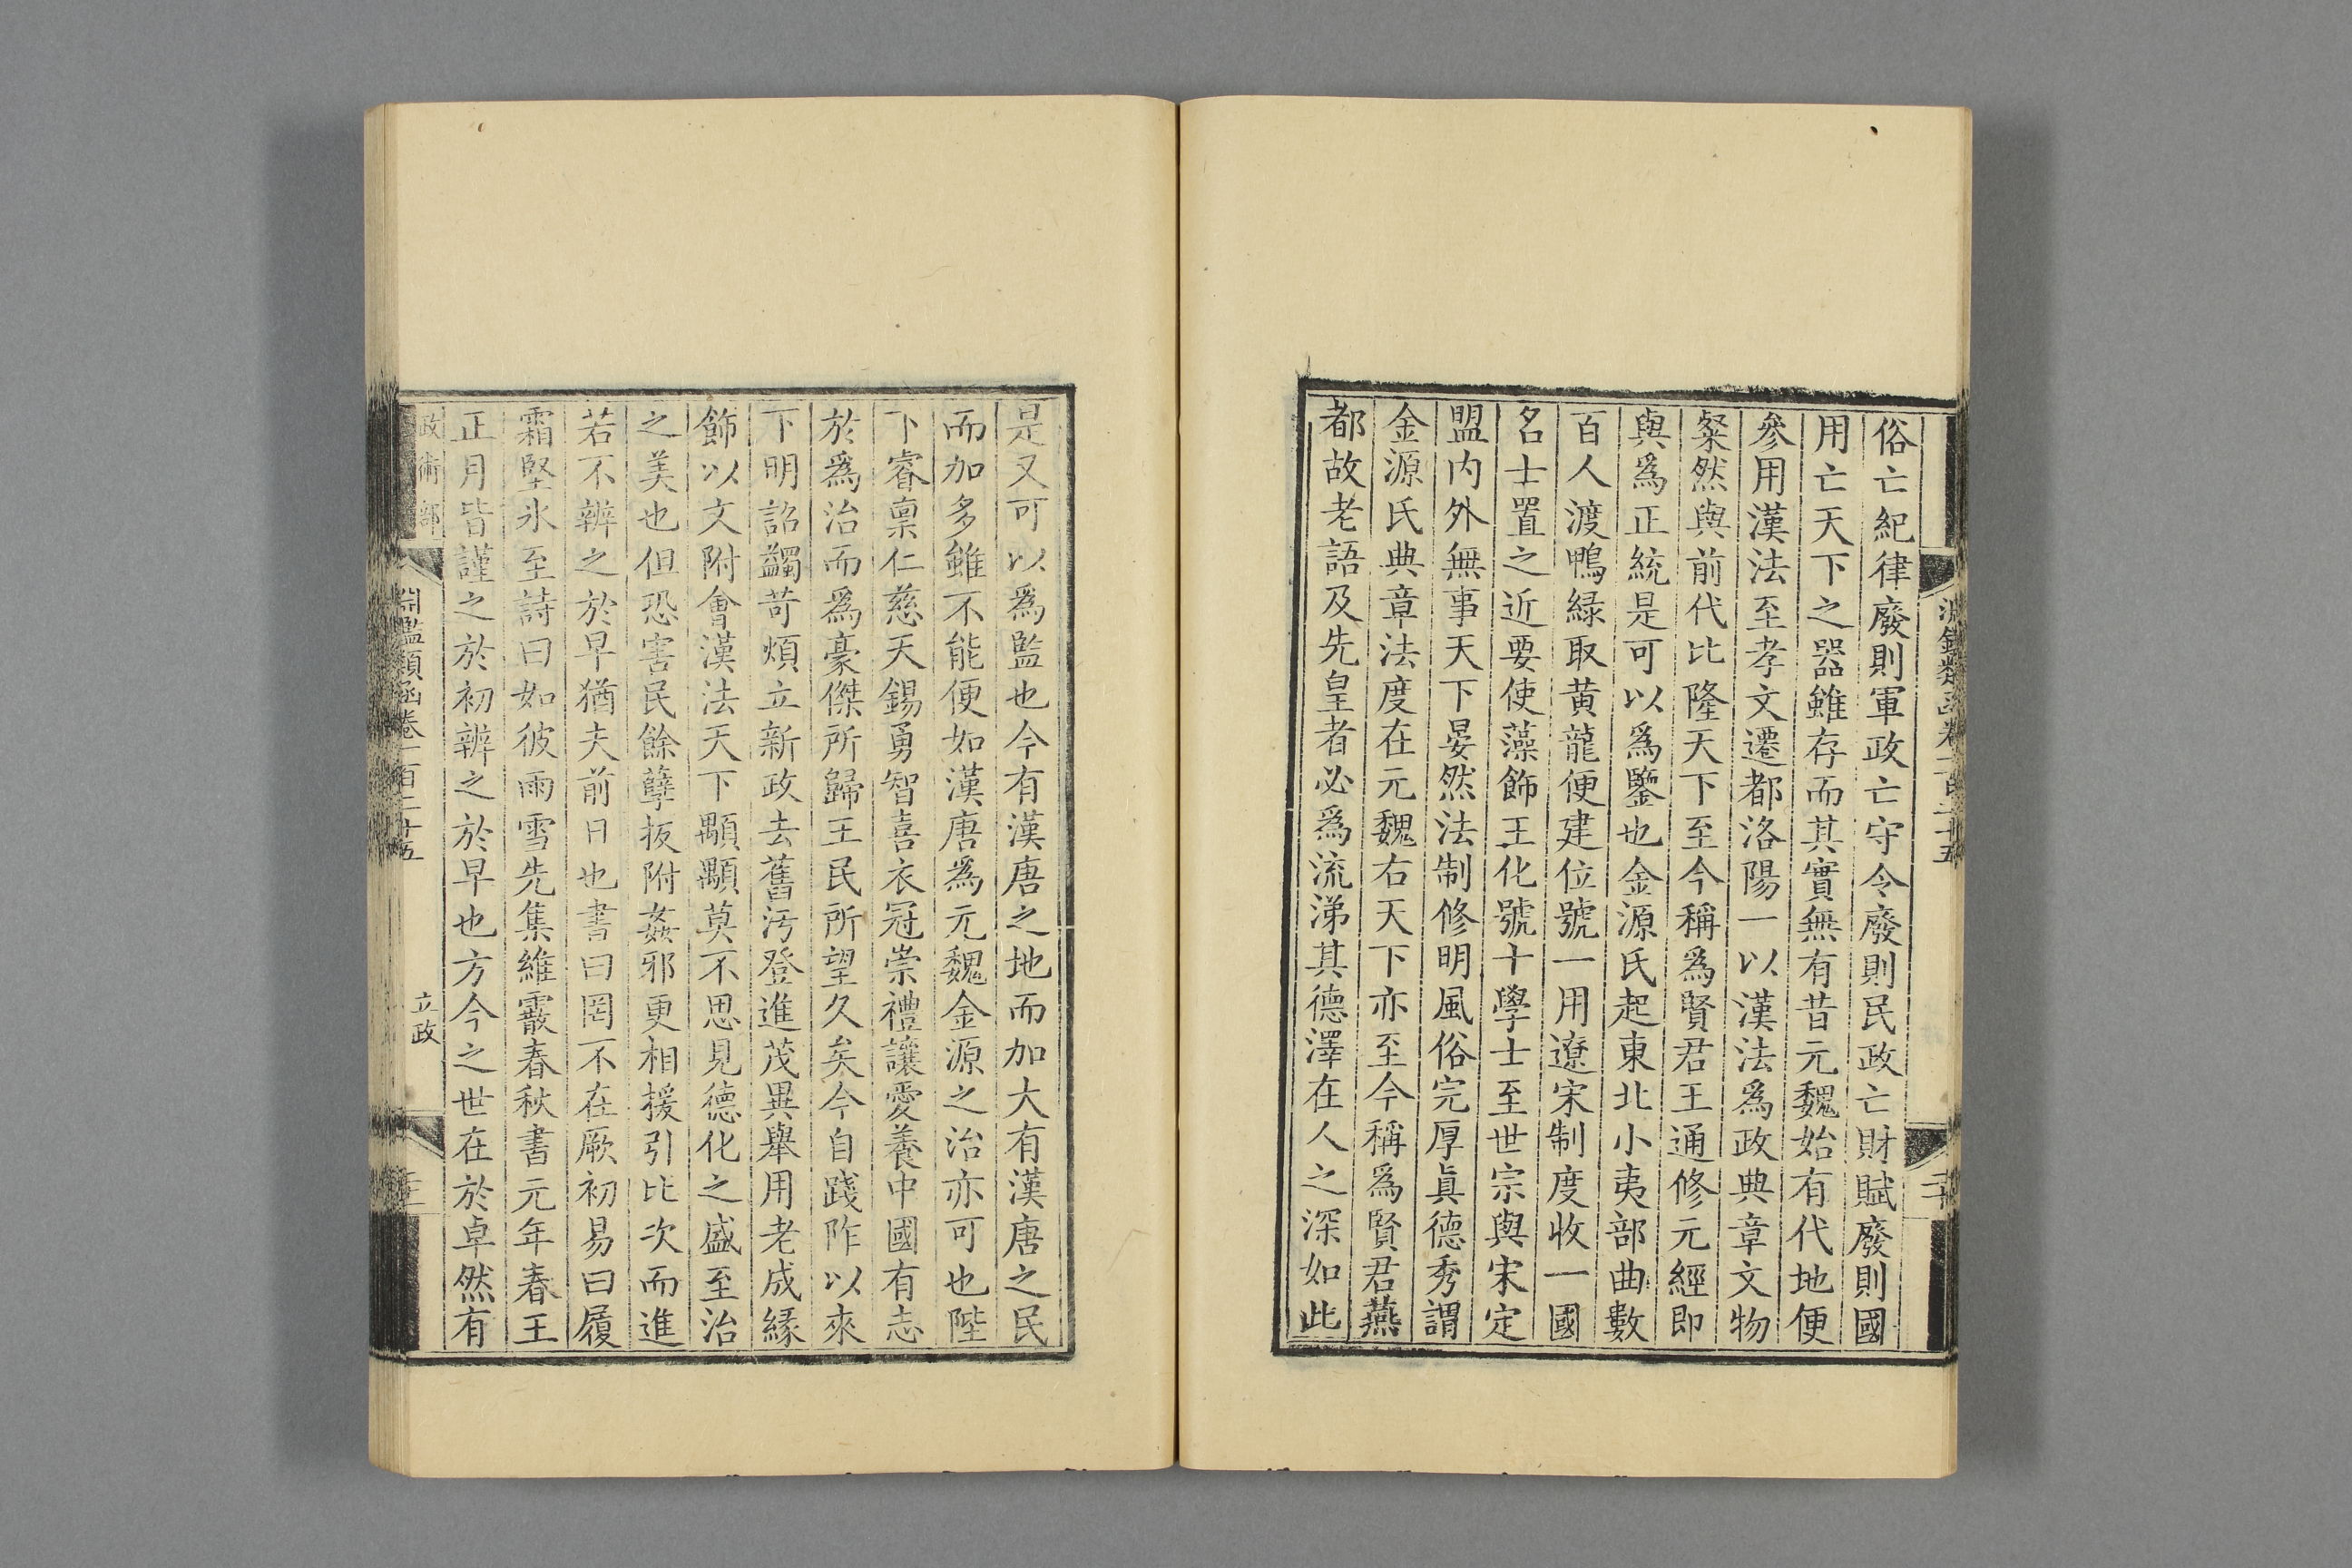 俗亡紀律廢則軍政亡守令廢則民政亡財賦廢則國
用亡天下之器雖存而其實無有昔元魏始有代地便
參用漢法至孝文遷都洛陽一以漢法爲政典章文物
粲然與前代比隆天下至今稱爲賢君王通修元經即
與爲正統是可以爲鑒也金源氏起東北小夷部曲數
百人渡鴨緑取黄龍便建位號一用遼宋制度收一國
名士置之近要使藻飾王化號十學士至世宗與宋定
盟内外無事天下晏然法制修明風俗完厚眞德秀謂
金源氏典章法度在元魏右天下亦至今稱爲賢君燕
都故老語及先皇者必爲流涕其德澤在人之深如此
是又可以爲監也今有漢唐之地而加大有漢唐之民
而加多雖不能便如漢唐爲元魏金源之治亦可也陛
下睿禀仁慈天錫勇智喜衣冠崇禮讓愛養中國有志
於爲治而爲豪傑所歸王民所望久矣今自踐阼以來
下明詔蠲苛煩立新政去舊汚登進茂異舉用老成緣
飾以文附會漢法天下顒顒莫不思見德化之盛至治
之美也但恐害民餘孽扳附姦邪更相援引比次而進
若不辨之於早猶夫前日也書曰罔不在厥初易曰履
霜堅氷至詩曰如彼雨雪先集維霰春秋書元年春王
正月皆謹之於初辨之於早也方今之世在於卓然有
政術部
淵鑑類函卷一百二十五
立政